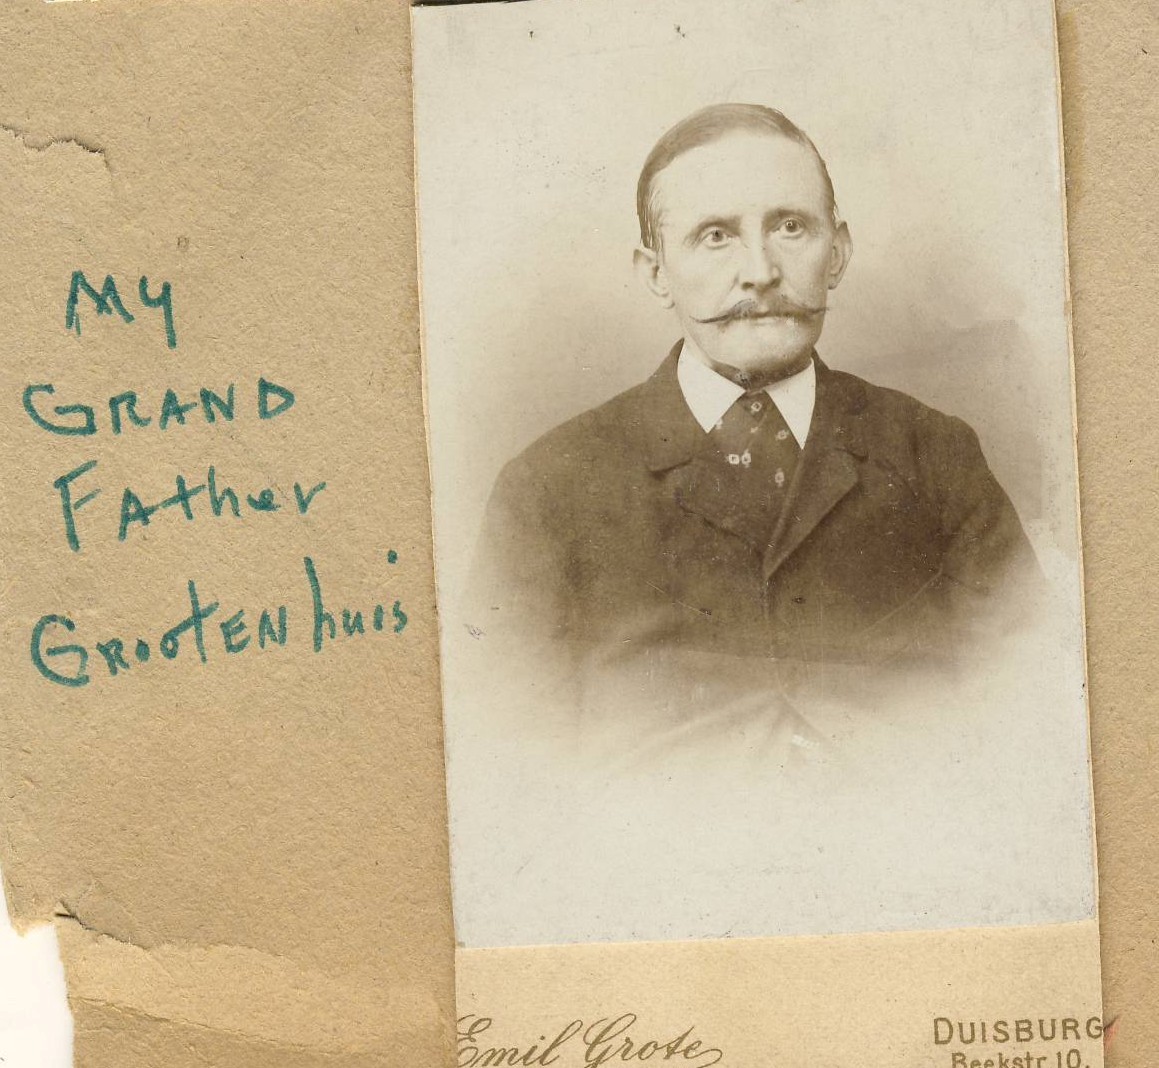 My
GRAND
FAther
GrootENhuis
Emil Grote
DUISBURG
Beekstr. 10.